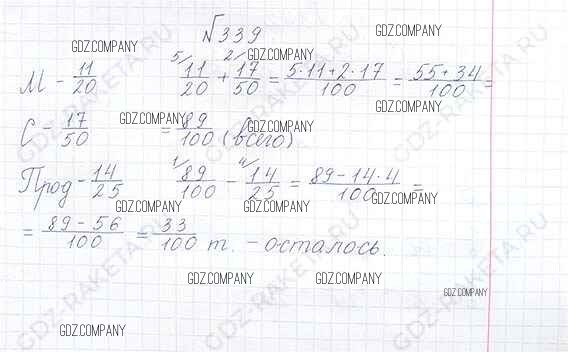 √339
М - 11/20   5/ 11/20 + 2/ 17/50 = 5·11+2·17/100 = 55+34/100 =
С - 17/50   = 89/100 (всего)
Прод - 14/25   1/ 89/100 - 4/ 14/25 = 89-14·4/100 =
= 89-56/100 = 33/100 т. - осталось.
GDZ.COMPANY
GDZ.COMPANY
GDZ.COMPANY
GDZ.COMPANY
GDZ.COMPANY
GDZ.COMPANY
GDZ.COMPANY
GDZ.COMPANY
GDZ.COMPANY
GDZ.COMPANY
GDZ.COMPANY
GDZ.COMPANY
GDZ-RAKETA.RU
GDZ-RAKETA.RU
GDZ-RAKETA.RU